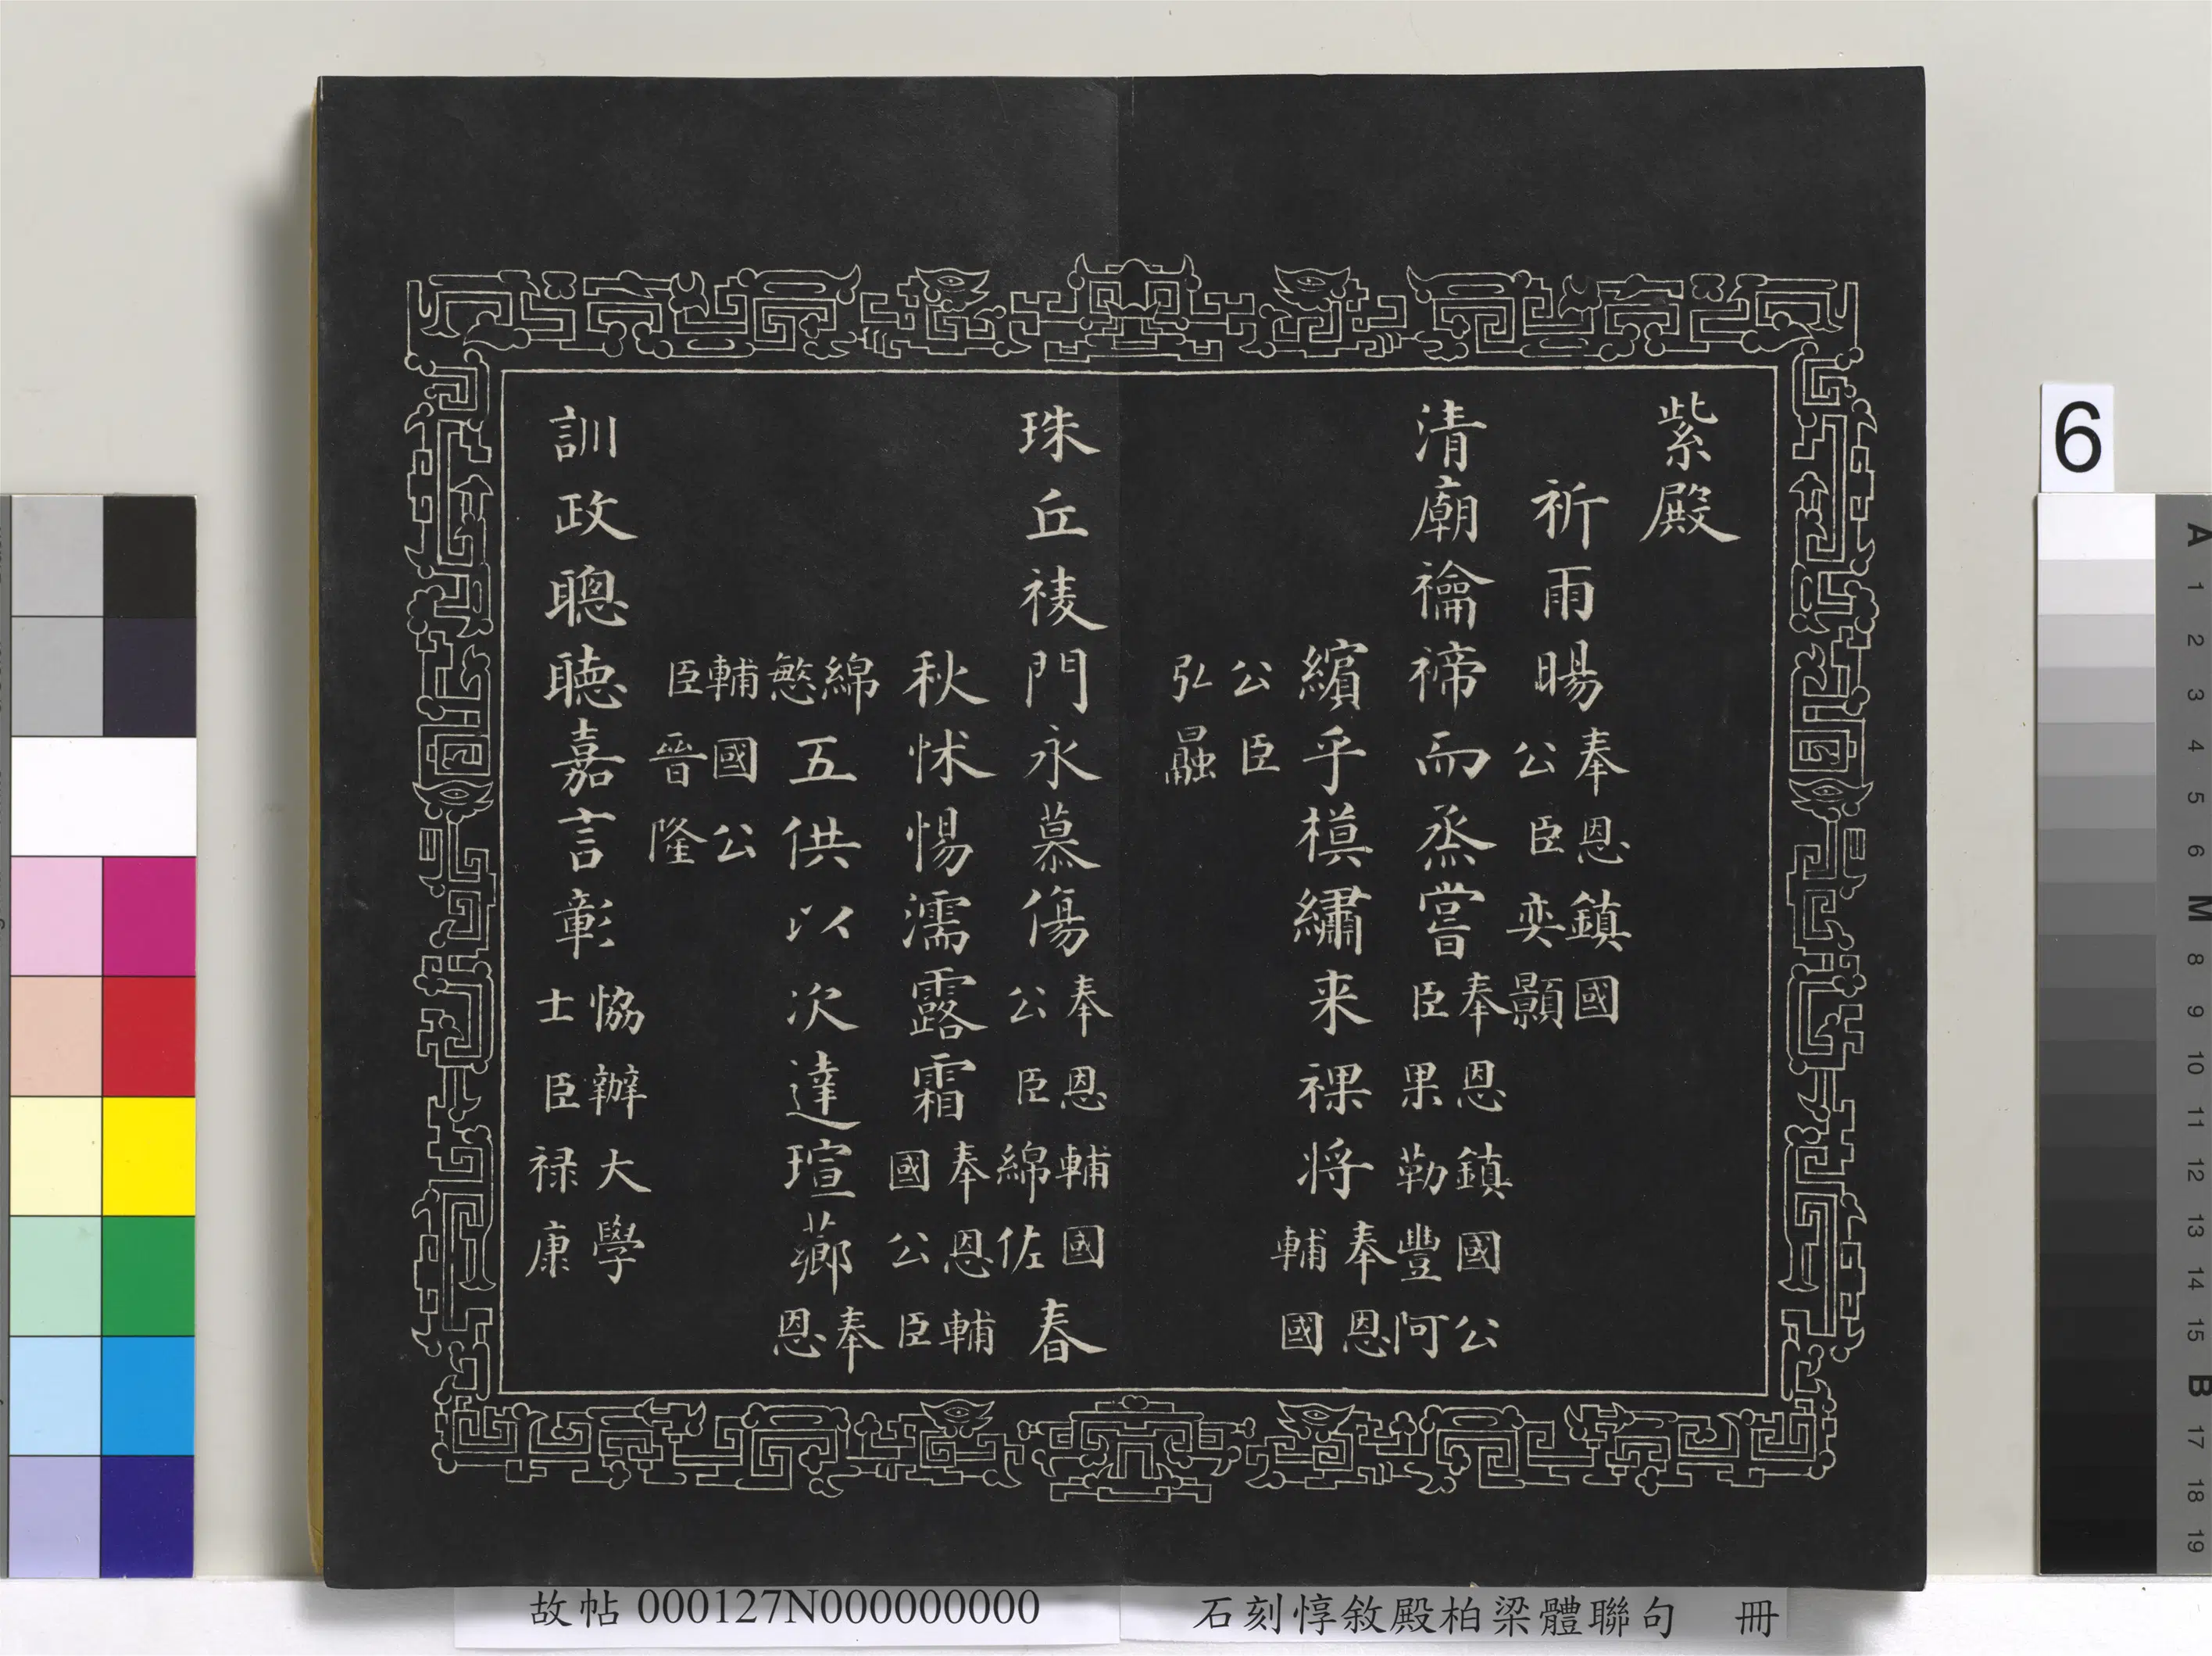 紫殿
祈雨暘奉恩鎮國
公臣奕顥
清廟禴禘而烝嘗奉恩鎮國公
臣果勒豐阿
繽乎槙繡来祼将奉恩
輔國
公臣
弘䵻
珠丘祾門永慕傷奉恩輔國
公臣綿佐
春
秋怵惕濡露霜奉恩輔
國公臣
綿
慜
五供以次達瑄薌奉
恩
輔國公
臣晉隆
訓政聰聴嘉言彰協辦大學
士臣禄康
故帖 000127N000000000
石刻惇敘殿柏梁體聯句 冊
6
A 1 2 3 4 5 6 M 8 9 10 11 12 13 14 15 B 17 18 19